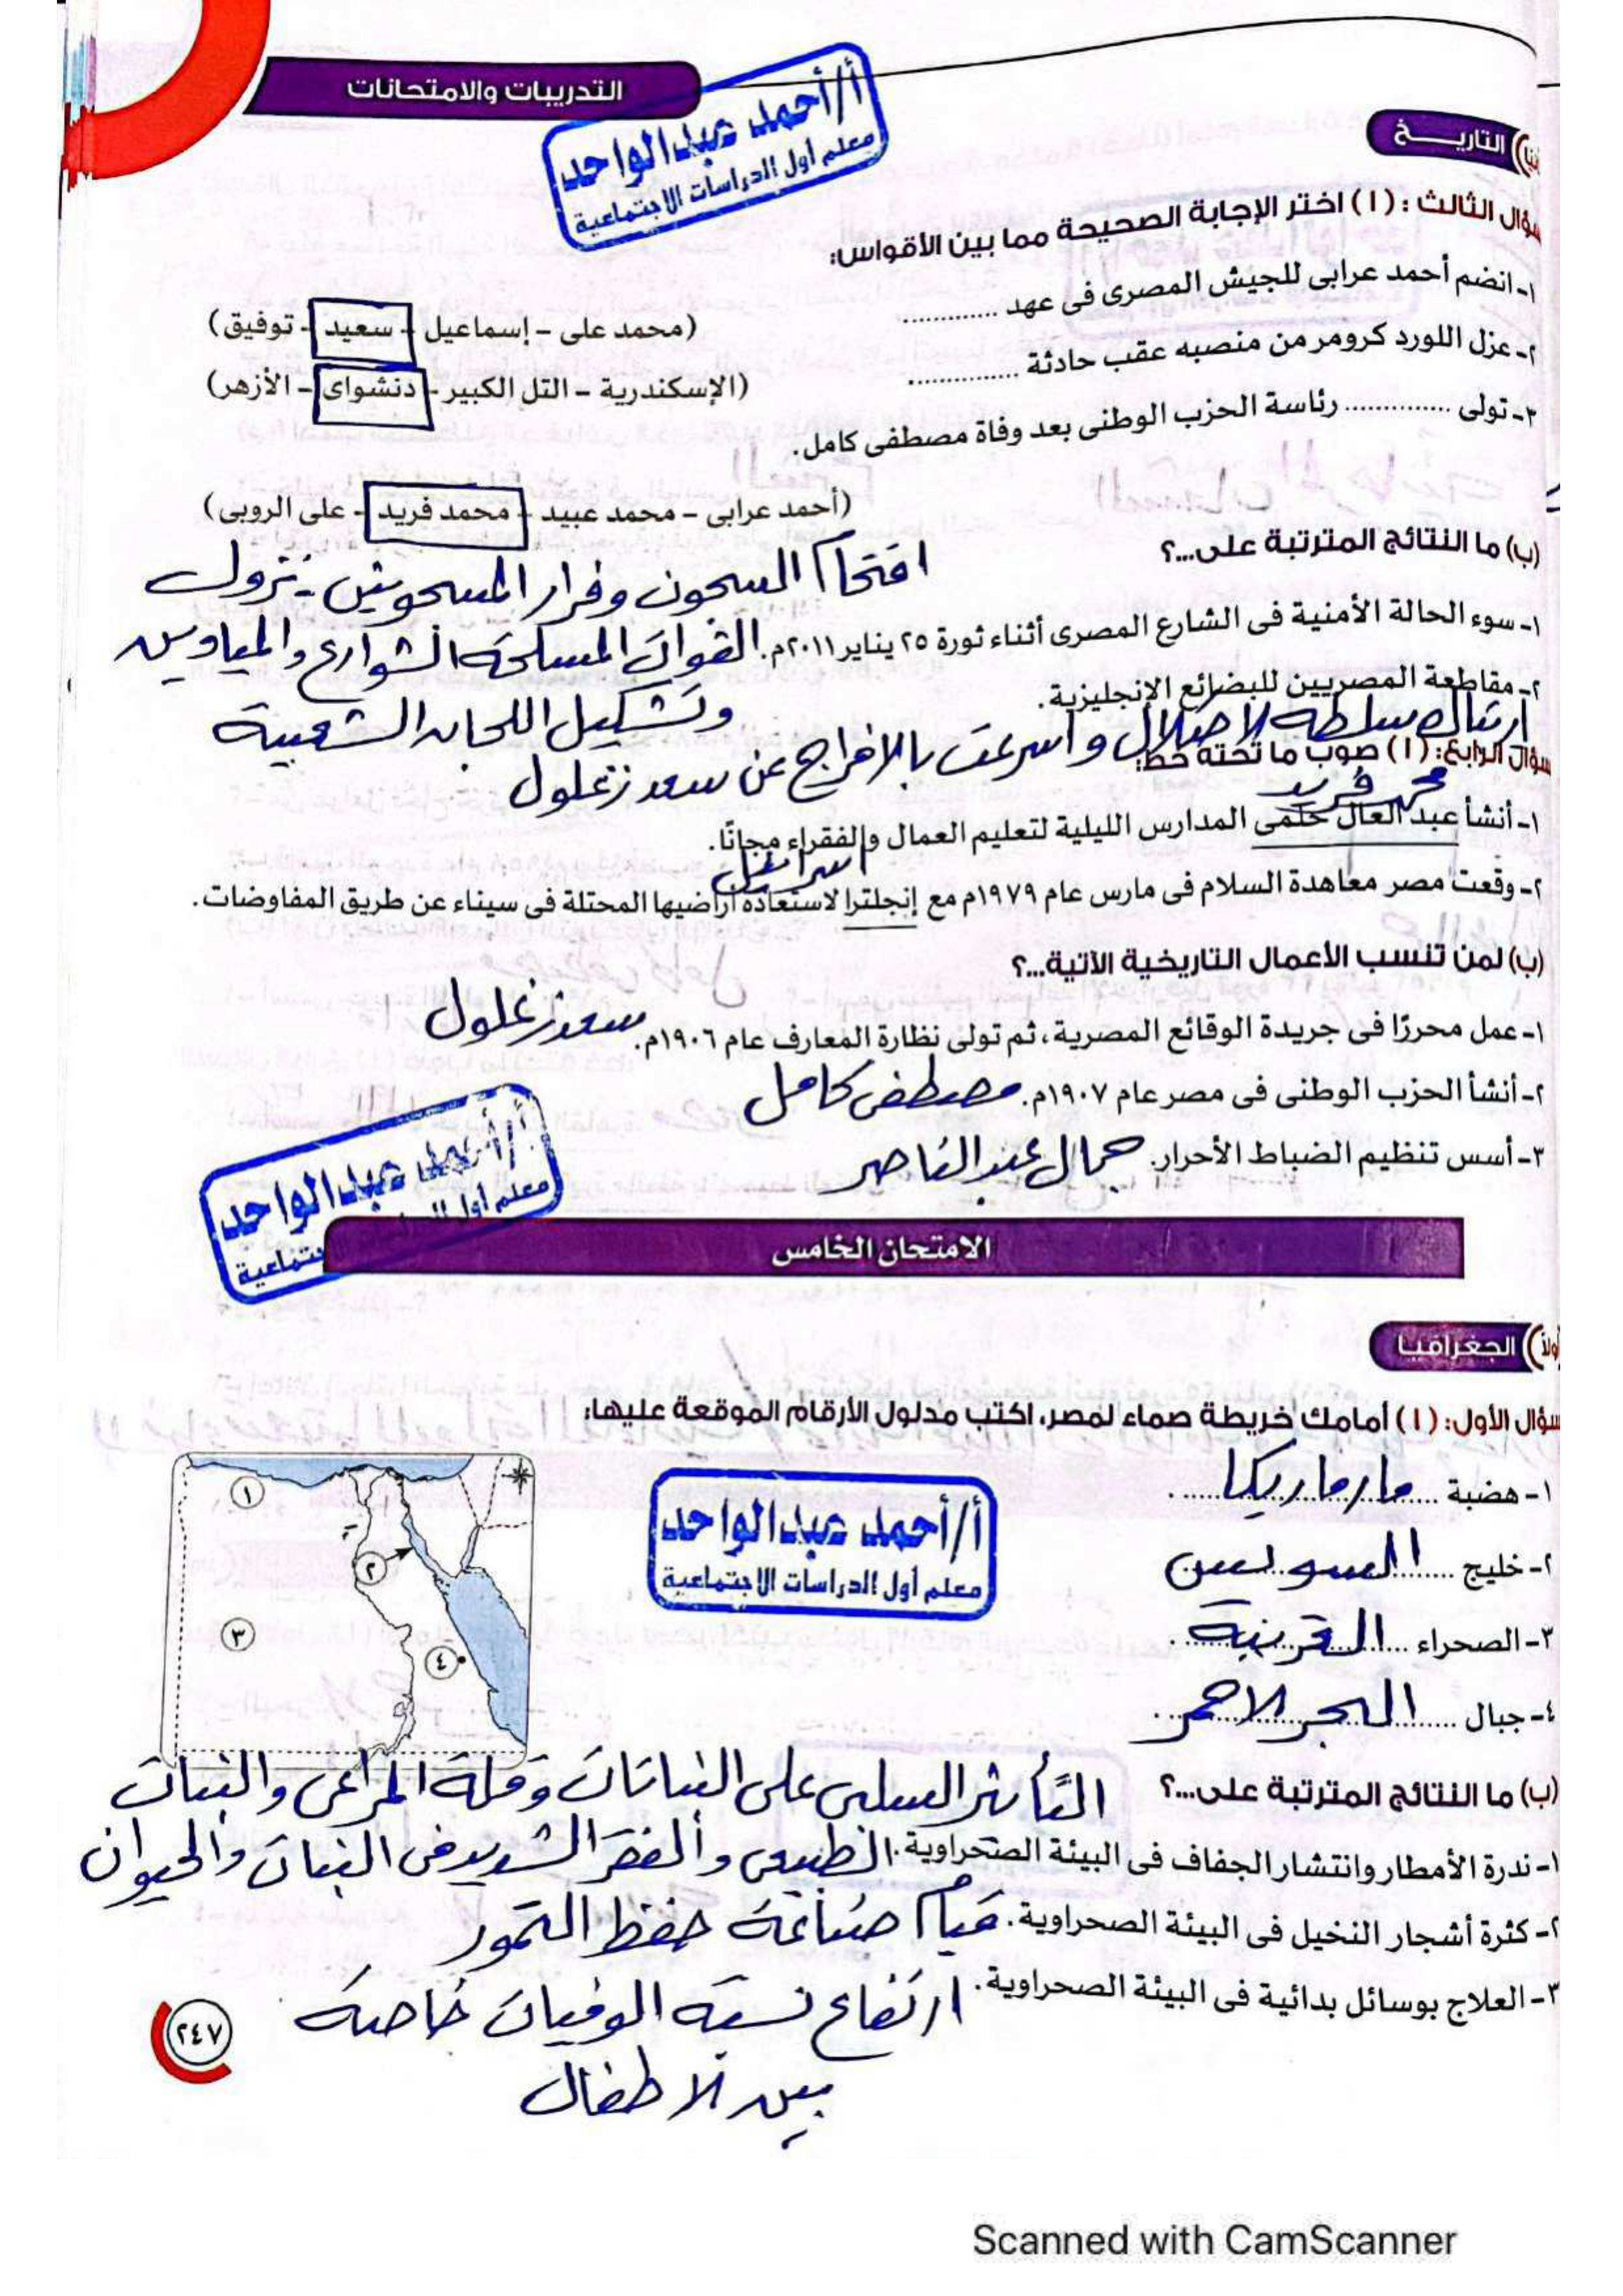 التدريبات والامتحانات
أ/أحمد عبدالواحد
معلم أول الدراسات الاجتماعية
التاريخ
سؤال الثالث : (١) اختر الإجابة الصحيحة مما بين الأقواس:
١- انضم أحمد عرابى للجيش المصرى فى عهد ............
(محمد على - إسماعيل - سعيد - توفيق)
٢- عزل اللورد كرومر من منصبه عقب حادثة ............
(الإسكندرية - التل الكبير - دنشواى - الأزهر)
٣- تولى ............ رئاسة الحزب الوطنى بعد وفاة مصطفى كامل.
(أحمد عرابى - محمد عبيد - محمد فريد - على الروبى)
(ب) ما النتائج المترتبة على...؟
اقتحام السجون وفرار المسجونين - نزول
١- سوء الحالة الأمنية فى الشارع المصرى أثناء ثورة ٢٥ يناير ٢٠١١م. القوات المسلحة الشوارع والميادين
وتشكيل اللجان الشعبية
٢- مقاطعة المصريين للبضائع الإنجليزية.
ارتباك سلطة الاحتلال واسرعت بالافراج عن سعد زغلول
سؤال الرابع: (١) صوب ما تحته خط:
محمد فريد
١- أنشأ عبد العال حلمى المدارس الليلية لتعليم العمال والفقراء مجانًا.
اسرائيل
٢- وقعت مصر معاهدة السلام فى مارس عام ١٩٧٩م مع إنجلترا لاستعادة أراضيها المحتلة فى سيناء عن طريق المفاوضات.
(ب) لمن تنسب الأعمال التاريخية الآتية...؟
١- عمل محررًا فى جريدة الوقائع المصرية، ثم تولى نظارة المعارف عام ١٩٠٦م. سعد زغلول
٢- أنشأ الحزب الوطنى فى مصر عام ١٩٠٧م. مصطفى كامل
٣- أسس تنظيم الضباط الأحرار. جمال عبد الناصر
أ/أحمد عبدالواحد
معلم أول الدراسات الاجتماعية
الامتحان الخامس
الجغرافيا
سؤال الأول: (١) أمامك خريطة صماء لمصر، اكتب مدلول الأرقام الموقعة عليها:
١- هضبة مارماريكا
٢- خليج السويس
٣- الصحراء الغربية
٤- جبال البحر الاحمر
١
٢
٣
٤
أ/أحمد عبدالواحد
معلم أول الدراسات الاجتماعية
(ب) ما النتائج المترتبة على...؟
التأثير السلبى على النباتات وقلة المراعى والنبات
١- ندرة الأمطار وانتشار الجفاف فى البيئة الصحراوية. الطبيعى والفقر الشديد فى النبات والحيوان
٢- كثرة أشجار النخيل فى البيئة الصحراوية. قيام صناعة حفظ التمور
٣- العلاج بوسائل بدائية فى البيئة الصحراوية. ارتفاع نسبة الوفيات خاصة
بين الاطفال
٢٤٧
Scanned with CamScanner